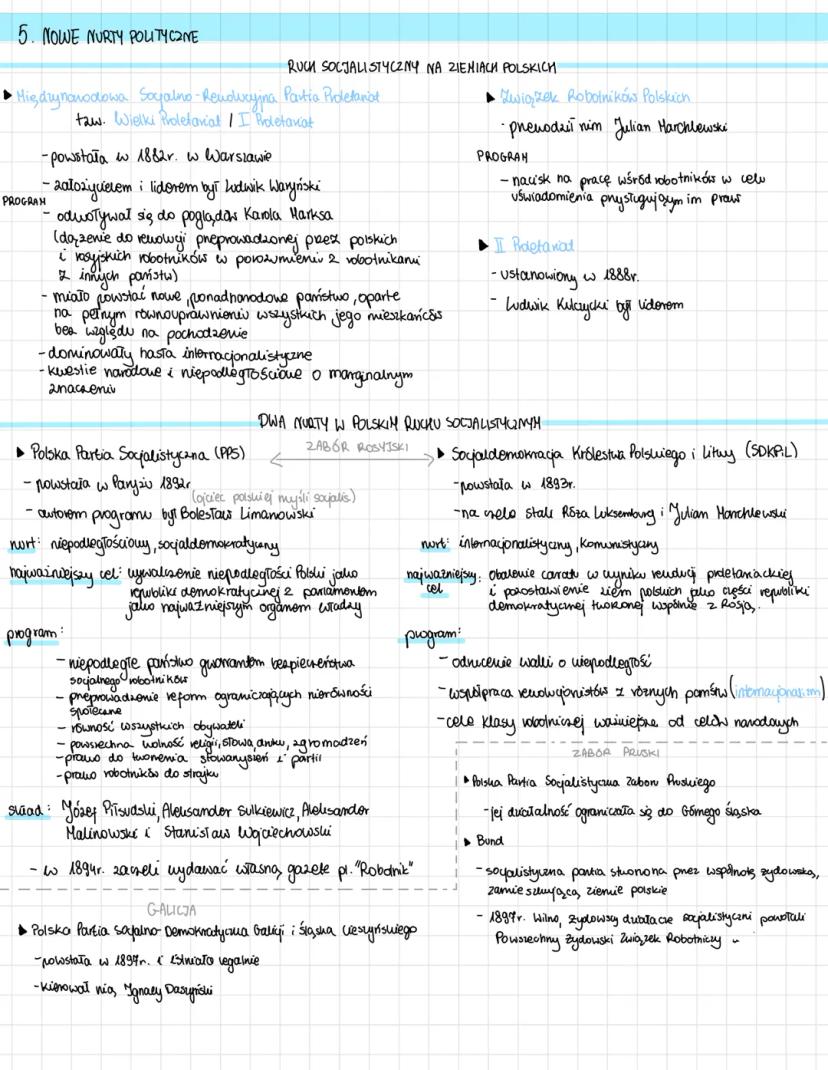 5. NOWE NURTY POLITYCZNE
RUCH SOCJALISTYCZNY NA ZIEMIACH POLSKICH
▶ Międzynarodowa Socjalno-Rewolucyjna Partia Proletariat
tzw. Wielki Proletariat / I Proletariat
- powstała w 1882r. w Warszawie
- założycielem i liderem był Ludwik Waryński
PROGRAM
- odwoływał się do poglądów Karola Marksa
(dążenie do rewolucji przeprowadzonej przez polskich
i rosyjskich robotników w porozumieniu z robotnikami
z innych państw)
- miało powstać nowe, ponadnarodowe państwo, oparte
na pełnym równouprawnieniu wszystkich jego mieszkańców
bez względu na pochodzenie
- dominowały hasła internacjonalistyczne
- kwestie narodowe i niepodległościowe o marginalnym
znaczeniu
▶ Związek Robotników Polskich
- przewodził nim Julian Marchlewski
PROGRAM
- nacisk na pracę wśród robotników w celu
uświadomienia przysługującym im praw
▶ II Proletariat
- ustanowiony w 1888r.
- Ludwik Kulczycki był liderem
DWA NURTY W POLSKIM RUCHU SOCJALISTYCZNYM
ZABÓR ROSYJSKI
▶ Polska Partia Socjalistyczna (PPS)
- powstała w Paryżu 1892r.
(ojciec polskiej myśli socjalis.)
- autorem programu był Bolesław Limanowski
nurt: niepodległościowy, socjaldemokratyczny
najważniejszy cel: wywalczenie niepodległości Polski jako
republiki demokratycznej z parlamentem
jako najważniejszym organem władzy
program:
- niepodległe państwo gwarantem bezpieczeństwa
socjalnego robotników
- przeprowadzenie reform ograniczających nierówności
społeczne
- równość wszystkich obywateli
- powszechna wolność religii, słowa, druku, zgromadzeń
- prawo do tworzenia stowarzyszeń i partii
- prawo robotników do strajku
skład: Józef Piłsudski, Aleksander Sulkiewicz, Aleksander
Malinowski i Stanisław Wojciechowski
- w 1894r. zaczeli wydawać własną gazetę pt. "Robotnik"
▶ Socjaldemokracja Królestwa Polskiego i Litwy (SDKPiL)
- powstała w 1893r.
- na czele stali Róża Luksemburg i Julian Marchlewski
nurt: internacjonalistyczny, komunistyczny
najważniejszy: obalenie caratu w wyniku rewolucji proletariackiej
cel i pozostawienie ziem polskich jako części republiki
demokratycznej tworzonej wspólnie z Rosją.
program:
- odrzucenie walki o niepodległość
- współpraca rewolucjonistów z różnych państw (internacjonalizm)
- cele klasy robotniczej ważniejsze od celów narodowych
ZABÓR PRUSKI
▶ Polska Partia Socjalistyczna Zaboru Pruskiego
- jej działalność ograniczała się do Górnego Śląska
▶ Bund
- socjalistyczna partia stworzona przez wspólnotę żydowską,
zamieszkującą ziemie polskie
- 1897r. Wilno, żydowscy działacze socjalistyczni powołali
Powszechny Żydowski Związek Robotniczy
GALICJA
▶ Polska Partia Socjalno-Demokratyczna Galicji i Śląska Cieszyńskiego
- powstała w 1897r. i istniała legalnie
- kierował nią Ignacy Daszyński